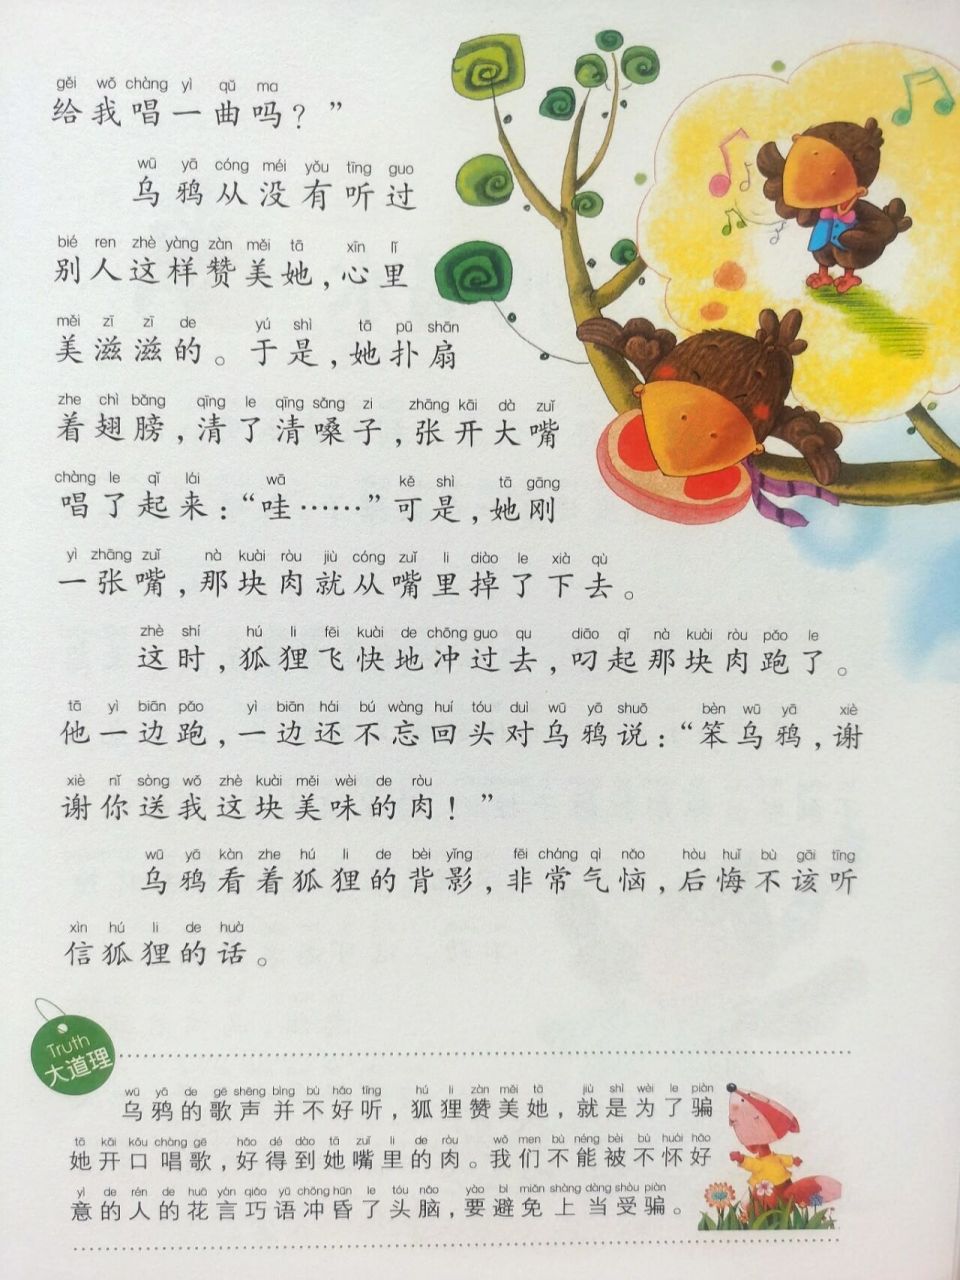 gěi wǒ chàng yì qǔ ma
给我唱一曲吗？”
wū yā cóng méi yǒu tīng guo
乌鸦从没有听过
bié ren zhè yàng zàn měi tā xīn lǐ
别人这样赞美她，心里
měi zī zī de yú shì tā pū shān
美滋滋的。于是，她扑扇
zhe chì bǎng qīng le qīng sǎng zi zhāng kāi dà zuǐ
着翅膀，清了清嗓子，张开大嘴
chàng le qǐ lái wā kě shì tā gāng
唱了起来：“哇……”可是，她刚
yì zhāng zuǐ nà kuài ròu jiù cóng zuǐ li diào le xià qù
一张嘴，那块肉就从嘴里掉了下去。
zhè shí hú li fēi kuài de chōng guo qu diāo qǐ nà kuài ròu pǎo le
这时，狐狸飞快地冲过去，叼起那块肉跑了。
tā yì biān pǎo yì biān hái bú wàng huí tóu duì wū yā shuō bèn wū yā xiè
他一边跑，一边还不忘回头对乌鸦说：“笨乌鸦，谢
xiè nǐ sòng wǒ zhè kuài měi wèi de ròu
谢你送我这块美味的肉！”
wū yā kàn zhe hú li de bèi yǐng fēi cháng qì nǎo hòu huǐ bù gāi tīng
乌鸦看着狐狸的背影，非常气恼，后悔不该听
xìn hú li de huà
信狐狸的话。
Truth
大道理
wū yā de gē shēng bìng bù hǎo tīng hú li zàn měi tā jiù shì wèi le piàn
乌鸦的歌声并不好听，狐狸赞美她，就是为了骗
tā kāi kǒu chàng gē hǎo dé dào tā zuǐ li de ròu wǒ men bù néng bèi bù huái hǎo
她开口唱歌，好得到她嘴里的肉。我们不能被不怀好
yì de rén de huā yán qiǎo yǔ chōng hūn le tóu nǎo yào bì miǎn shàng dàng shòu piàn
意的人的花言巧语冲昏了头脑，要避免上当受骗。